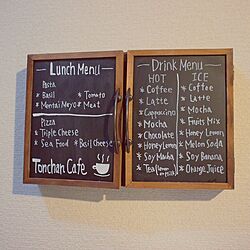 Lunch Menu
Pasta
* Basil * Tomato
* Mentai Mayo * Meat
Pizza
* Triple Cheese
* Sea Food * Basil Cheese
Tonchan Cafe
Drink Menu
HOT
* Coffee
* Latte
* Cappuccino
* Mocha
* Chocolate
* Honey Lemon
* Soy Macha
* Tea (lemon or milk)
ICE
* Coffee
* Latte
* Mocha
* Fruits Mix
* Honey Lemon
* Melon Soda
* Soy Banana
* Orange Juice